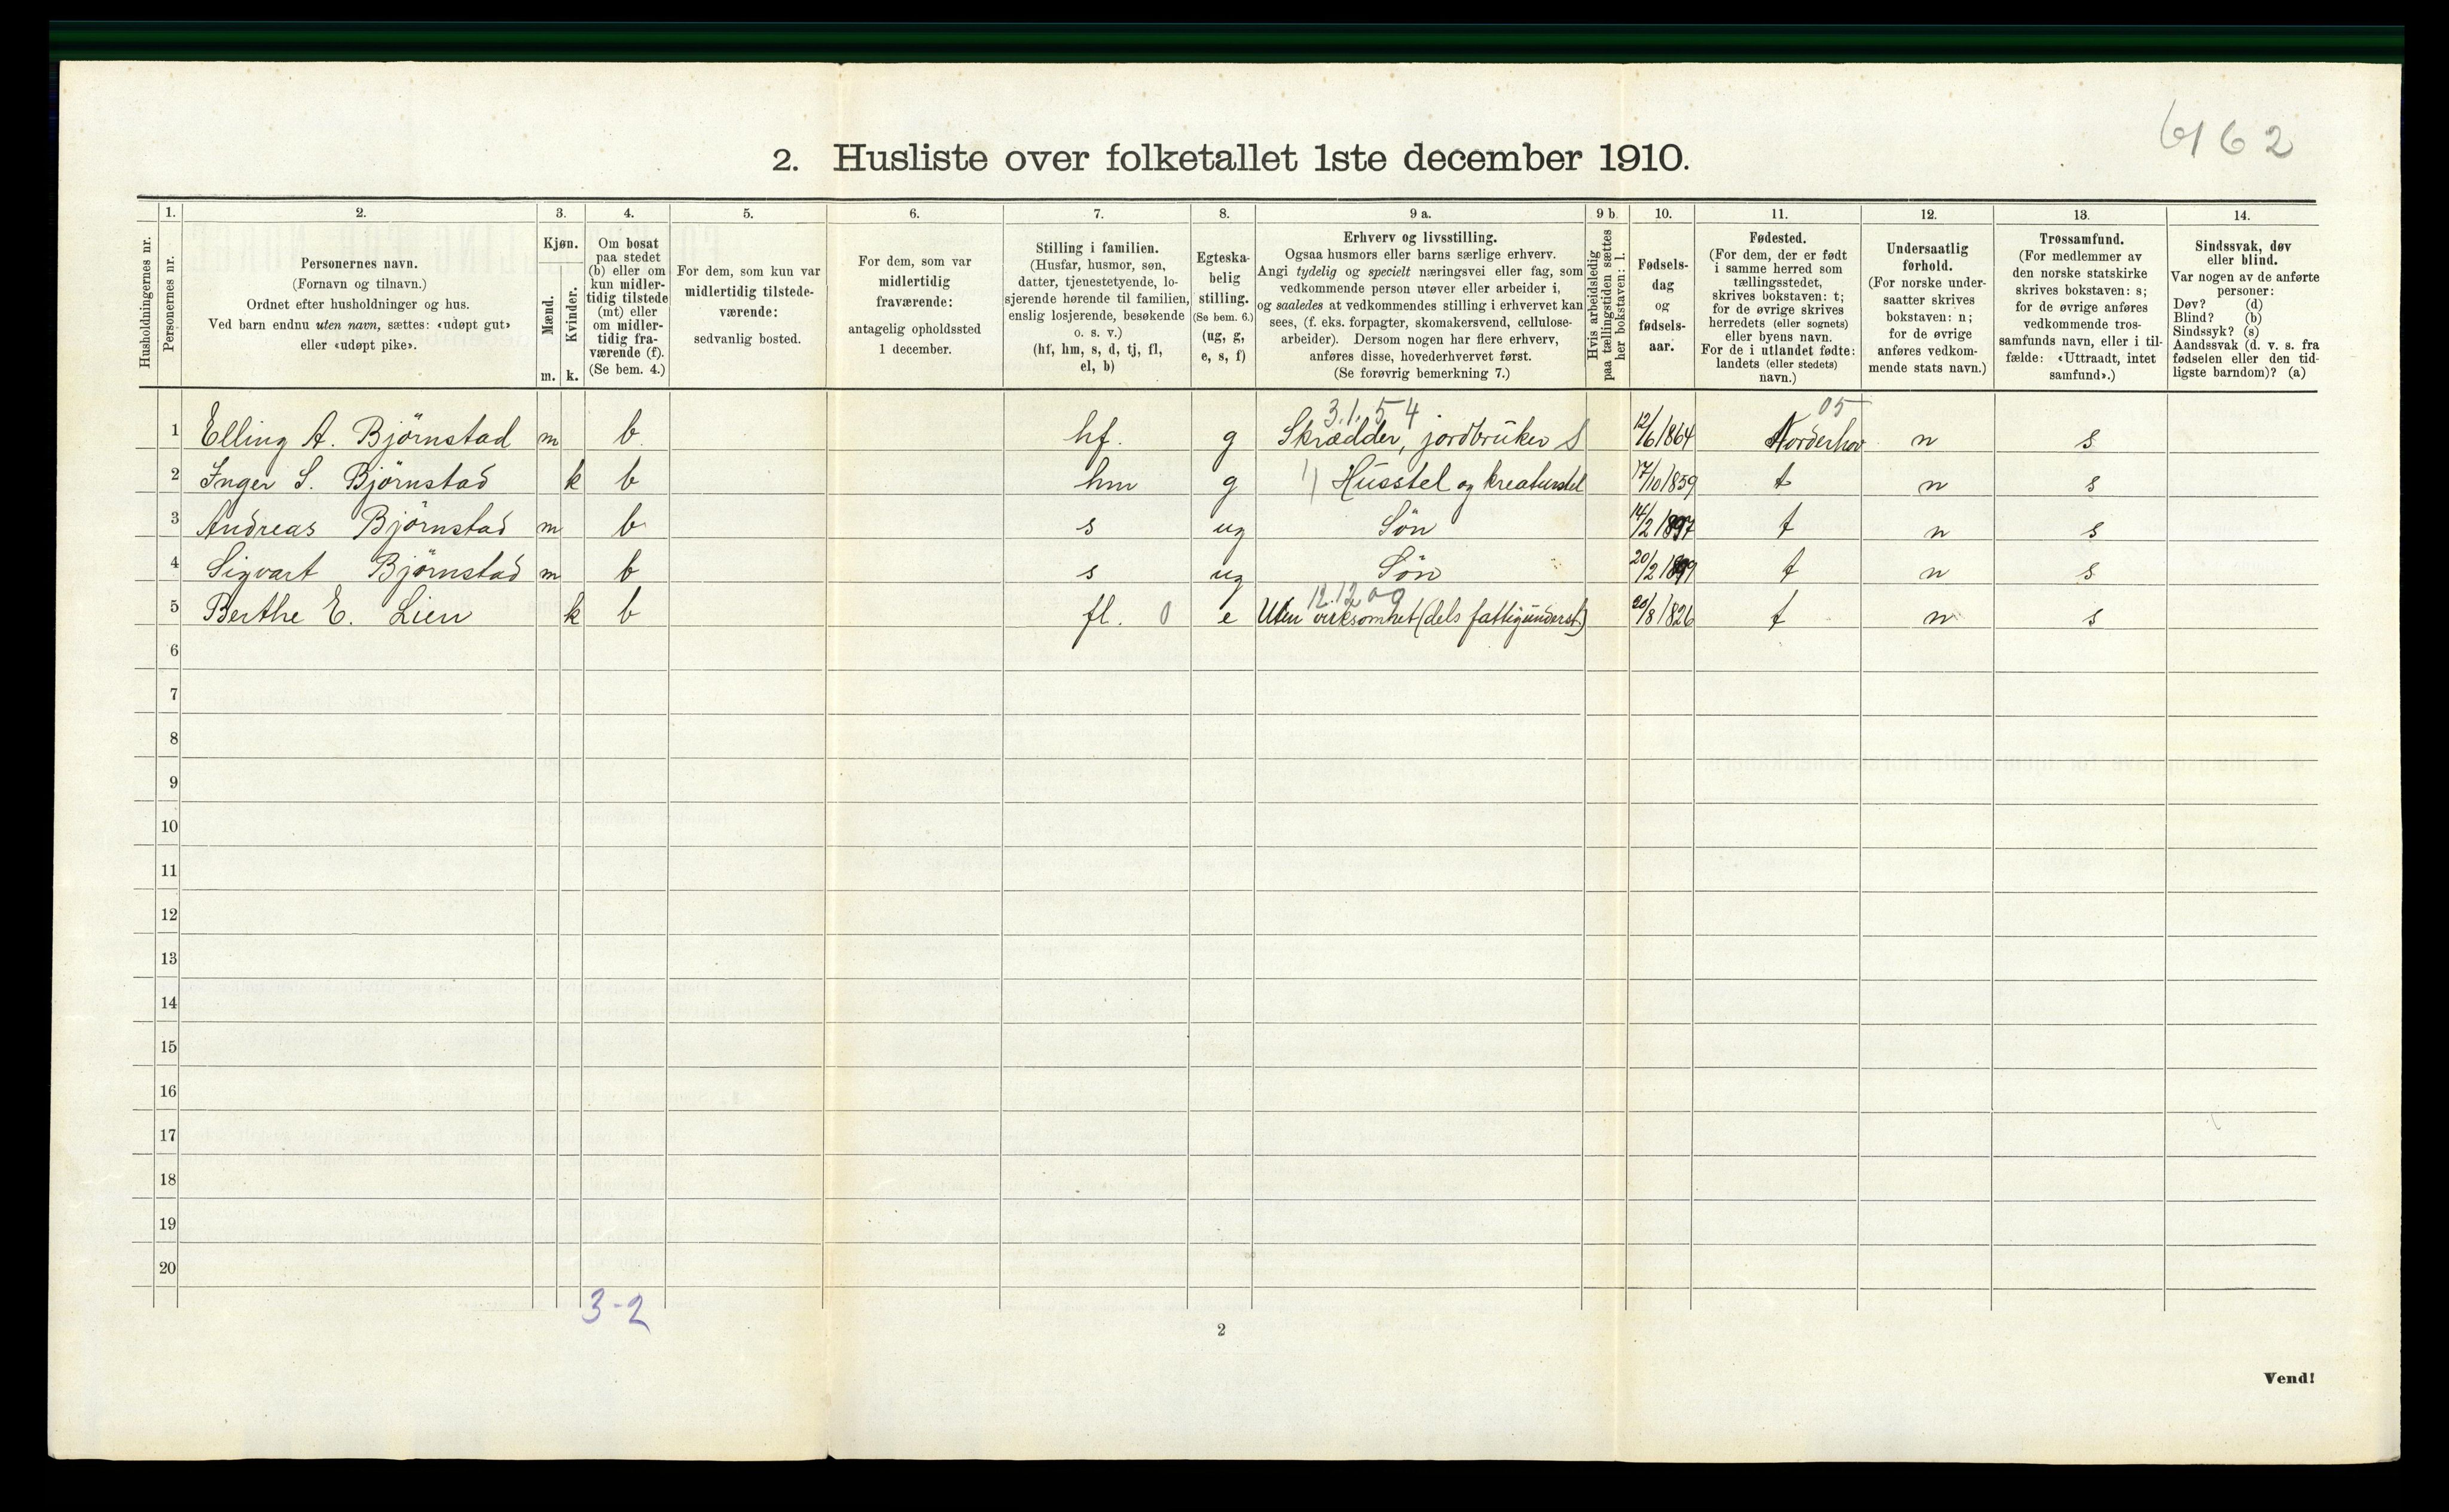 6162
2. Husliste over folketallet 1ste december 1910.
Husholdningernes nr.
1.
Personernes nr.
2.
Personernes navn.
(Fornavn og tilnavn.)
Ordnet efter husholdninger og hus.
Ved barn endnu uten navn, sættes: «udøpt gut»
eller «udøpt pike».
3.
Kjøn.
Mænd.
Kvinder.
m. k.
4.
Om bosat
paa stedet
(b) eller om
kun midler-
tidig tilstede
(mt) eller
om midler-
tidig fra-
værende (f).
(Se bem. 4.)
5.
For dem, som kun var
midlertidig tilstede-
værende:
sedvanlig bosted.
6.
For dem, som var
midlertidig
fraværende:
antagelig opholdssted
1 december.
7.
Stilling i familien.
(Husfar, husmor, søn,
datter, tjenestetyende, lo-
sjerende hørende til familien,
enslig losjerende, besøkende
o. s. v.)
(hf, hm, s, d, tj, fl,
el, b)
8.
Egteska-
belig
stilling.
(Se bem. 6.)
(ug, g,
e, s, f)
9 a.
Erhverv og livsstilling.
Ogsaa husmors eller barns særlige erhverv.
Angi tydelig og specielt næringsvei eller fag, som
vedkommende person utøver eller arbeider i,
og saaledes at vedkommendes stilling i erhvervet kan
sees, (f. eks. forpagter, skomakersvend, cellulose-
arbeider). Dersom nogen har flere erhverv,
anføres disse, hovederhvervet først.
(Se forøvrig bemerkning 7.)
9 b.
Hvis arbeidsledig
paa tællingstiden sættes
her bokstaven: l.
10.
Fødsels-
dag
og
fødsels-
aar.
11.
Fødested.
(For dem, der er født
i samme herred som
tællingsstedet,
skrives bokstaven: t;
for de øvrige skrives
herredets (eller sognets)
eller byens navn.
For de i utlandet fødte:
landets (eller stedets)
navn.)
12.
Undersaatlig
forhold.
(For norske under-
saatter skrives
bokstaven: n;
for de øvrige
anføres vedkom-
mende stats navn.)
13.
Trossamfund.
(For medlemmer av
den norske statskirke
skrives bokstaven: s;
for de øvrige anføres
vedkommende tros-
samfunds navn, eller i til-
fælde: «Uttraadt, intet
samfund».)
14.
Sindssvak, døv
eller blind.
Var nogen av de anførte
personer:
Døv? (d)
Blind? (b)
Sindssyk? (s)
Aandssvak (d. v. s. fra
fødselen eller den tid-
ligste barndom)? (a)
3.1.54 05
1 Elling A. Björnstad m b. hf. g Skrædder, jordbruker S 12/6 1864 Norderhov n s
2 Inger S. Björnstad k b hm g 1) Husstel og kreaturstel 17/10 1859 t n s
3 Andreas Björnstad m b s ug Sön 14/2 1897 t n s
4 Sigvart Björnstad m b s ug Sön 20/2 1899 t n s
12.12 00
5 Berthe E. Lien k b fl. 0 e Uten virksomhet (dels fattigunderst.) 20/8 1826 t n s
6
7
8
9
10
11
12
13
14
15
16
17
18
19
20
3-2
2
Vend!